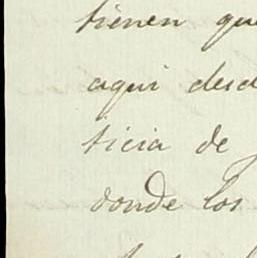 tienen que
aqui desd
ticia de
donde los